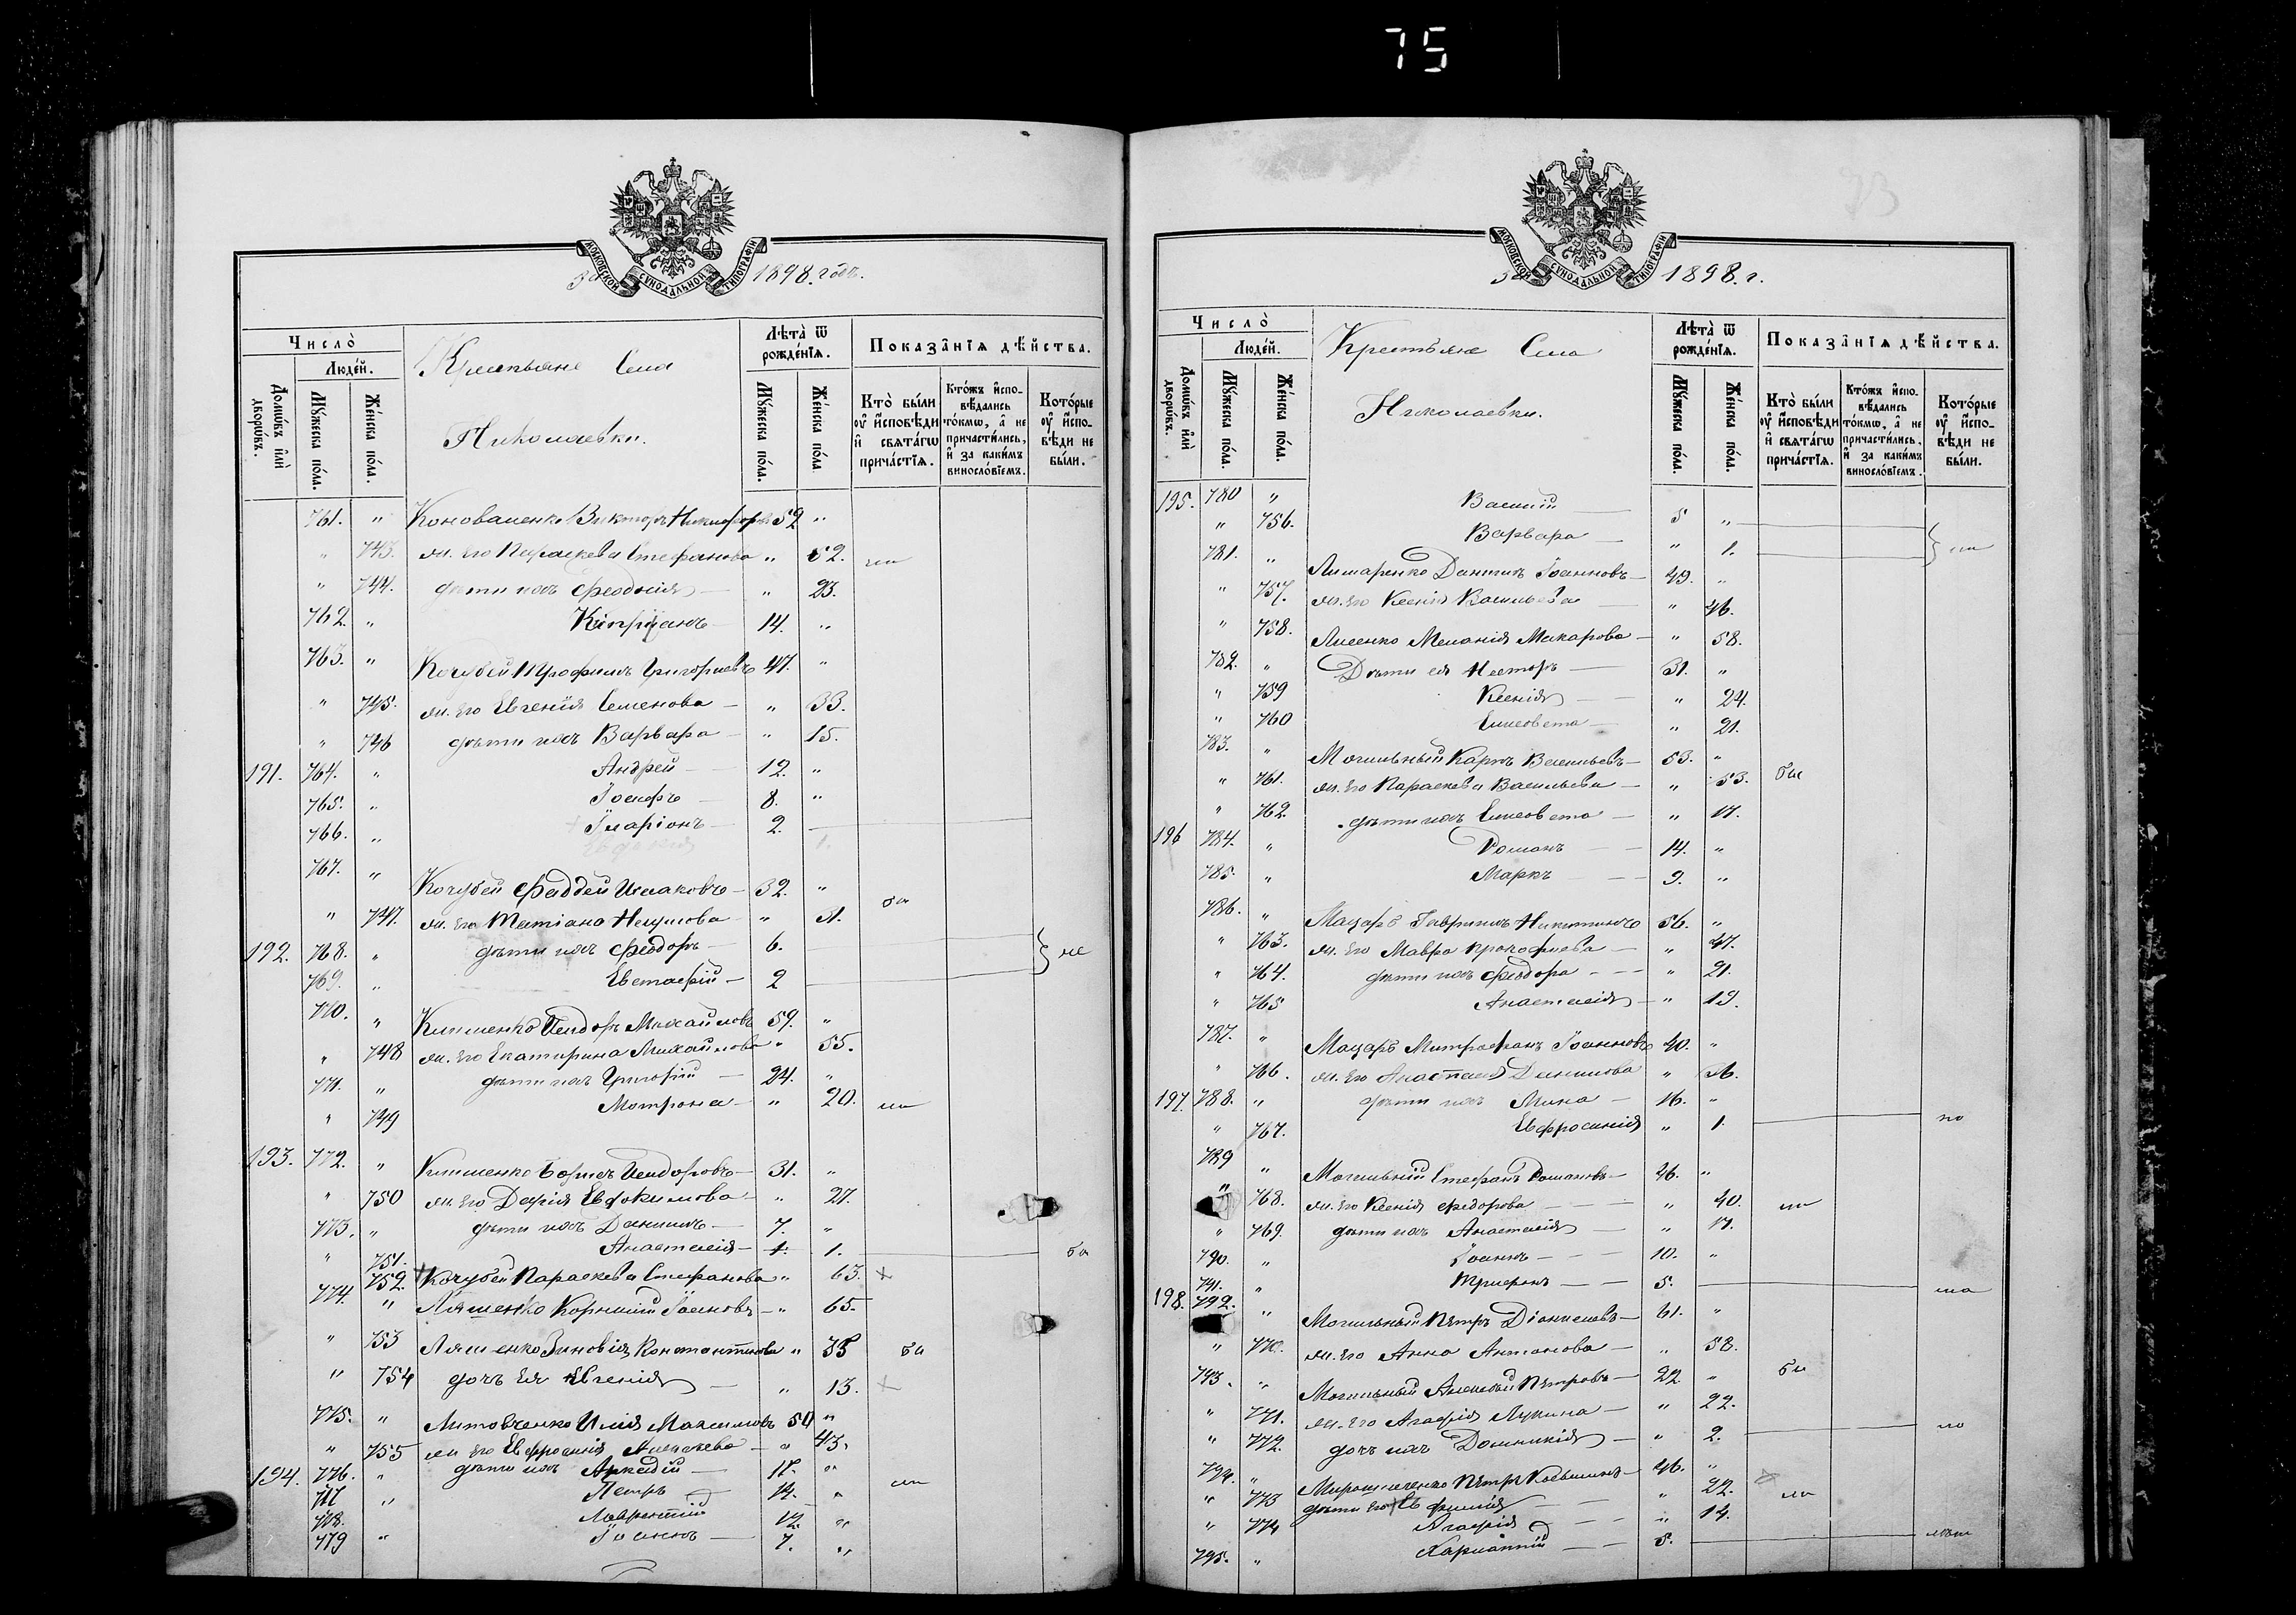 75
МОСКОВСКОЙ СѴНОДАЛЬНОЙ ТИПОГРАФІИ
За 1898. годъ.
Число̀
Люде́й.
Домѡ́въ и҆лѝ дворѡ́въ.
Мꙋ́жеска по́ла.
Же́нска по́ла.
Крестьяне Села
Николаевки.
Лѣта̀ ѿ рожде́нїѧ.
Мꙋ́жеска по́ла.
Же́нска по́ла.
Показа̑нїѧ дѣ́йства.
Кто̀ бы́ли ᲂу҆ и҆сповѣ́ди и҆ свѧта́гѡ прича́стїѧ.
Кто́жъ и҆сповѣ́дались то́кмѡ, а҆ не причасти́лись, и҆ за каки́мъ винослові́емъ.
Кото́рые ᲂу҆ и҆сповѣ́ди не бы́ли.
761. " Коноваленко Викторъ Никифоровъ 52 "
" 743. жн. его Параскева Стефанова " 52.
" 744. дѣти ихъ Феодосія — " 23.
762. " Кипріанъ — 14. "
763. " Кочубей Трофимъ Григорьевъ 47. "
" 745. жн. его Евгенія Семенова — " 33.
" 746 дѣти ихъ Варвара — " 15.
191. 764. " Андрей — 12. "
765. " Іосифъ — 8. "
766. " Иларіонъ — 2.
Евфимія 1.
767. " Кочубей Фаддей Исаковъ — 32. "
" 747. жн. его Татіана Наумова " 31.
192. 768. " дѣти ихъ Феодоръ — 6.
769. " Евстафій — 2
770. " Клименко Исидоръ Михайловъ 59. "
" 748 жн. его Екатерина Михайлова " 55.
771. " дѣти ихъ Григорій — 24. "
" 749 Мотрона — " 20.
193. 772. " Клименко Борисъ Исидоровъ — 31. "
" 750 жн. его Дарія Евдокимова — " 27.
773. " дѣти ихъ Даниилъ — 7. "
" 751. Анастасія — 1. 1.
752. Кочубей Параскева Стефанова " 63.
774. " Ляшенко Корнилій Іоанновъ — " 65.
" 753 Ляшенко Зиновія Константинова " 35
" 754 дочь ея Евгенія — " 13.
775. " Литовченко Илія Максимовъ 50 "
" 755 жн. его Евфросинія Алексѣева — " 43.
194. 776. " дѣти ихъ Аркадій — 17. "
777 " Петръ 14. "
778. " Лаврентій 12. "
779 " Іоаннъ — 7. "
МОСКОВСКОЙ СѴНОДАЛЬНОЙ ТИПОГРАФІИ
За 1898. г.
Число̀
Люде́й.
Домѡ́въ и҆лѝ дворѡ́въ.
Мꙋ́жеска по́ла.
Же́нска по́ла.
Крестьяне Села
Николаевки.
Лѣта̀ ѿ рожде́нїѧ.
Мꙋ́жеска по́ла.
Же́нска по́ла.
Показа̑нїѧ дѣ́йства.
Кто̀ бы́ли ᲂу҆ и҆сповѣ́ди и҆ свѧта́гѡ прича́стїѧ.
Кто́жъ и҆сповѣ́дались то́кмѡ, а҆ не причасти́лись, и҆ за каки́мъ винослові́емъ.
Кото́рые ᲂу҆ и҆сповѣ́ди не бы́ли.
195. 780 " Василій — 5 "
" 756. Варвара — " 1.
781. " Лимаренко Даниилъ Іоанновъ — 49. "
" 757. жн. его Ксенія Васильева — " 46.
" 758. Лисенко Меланія Макарова — " 58.
782. " Дѣти ея Несторъ — 31. "
" 759 Ксенія — " 24.
" 760 Елисовета — " 21.
783. " Могильный Карпъ Васильевъ — 53. "
" 761. жн. его Параскева Васильева — " 53. бы
" 762. дѣти ихъ Елисовета — " 17.
196 784. " Романъ — 14. "
785. " Маркъ — 9. "
786. " Мацаръ Гавріилъ Никитинъ 56. "
" 763. жн. его Мавра Прокофиева — " 47.
" 764. дѣти ихъ Феодора — " 21.
" 765 Анастасія — " 19.
787. " Мацаръ Митрофанъ Іоанновъ 40. "
" 766. жн. его Анастасія Данилова " 36.
197. 788. " дѣти ихъ Мина — 16. "
" 767. Евфросинія " 1.
789 " Могильный Стефанъ Романовъ — 46. "
" 768. жн. его Ксенія Федорова — " 40.
" 769. дѣти ихъ Анастасія — " 17.
790. " Іоаннъ — 10. "
791. " Трифонъ — 5.
198. 792. " Могильный Петръ Діонисіевъ — 61. "
" 770. жн. его Анна Антонова — " 58.
793. " Могильный Алексѣй Петровъ — 22 "
" 771. жн. его Агафія Лукина — " 22.
" 772. дочь ихъ Домникія — " 2.
794. " Мирошниченко Петръ Косьминъ — 46. "
" 773 дѣти его Евфимія — " 22.
" 774 Агафія — " 14.
795. " Харлампій — 5.